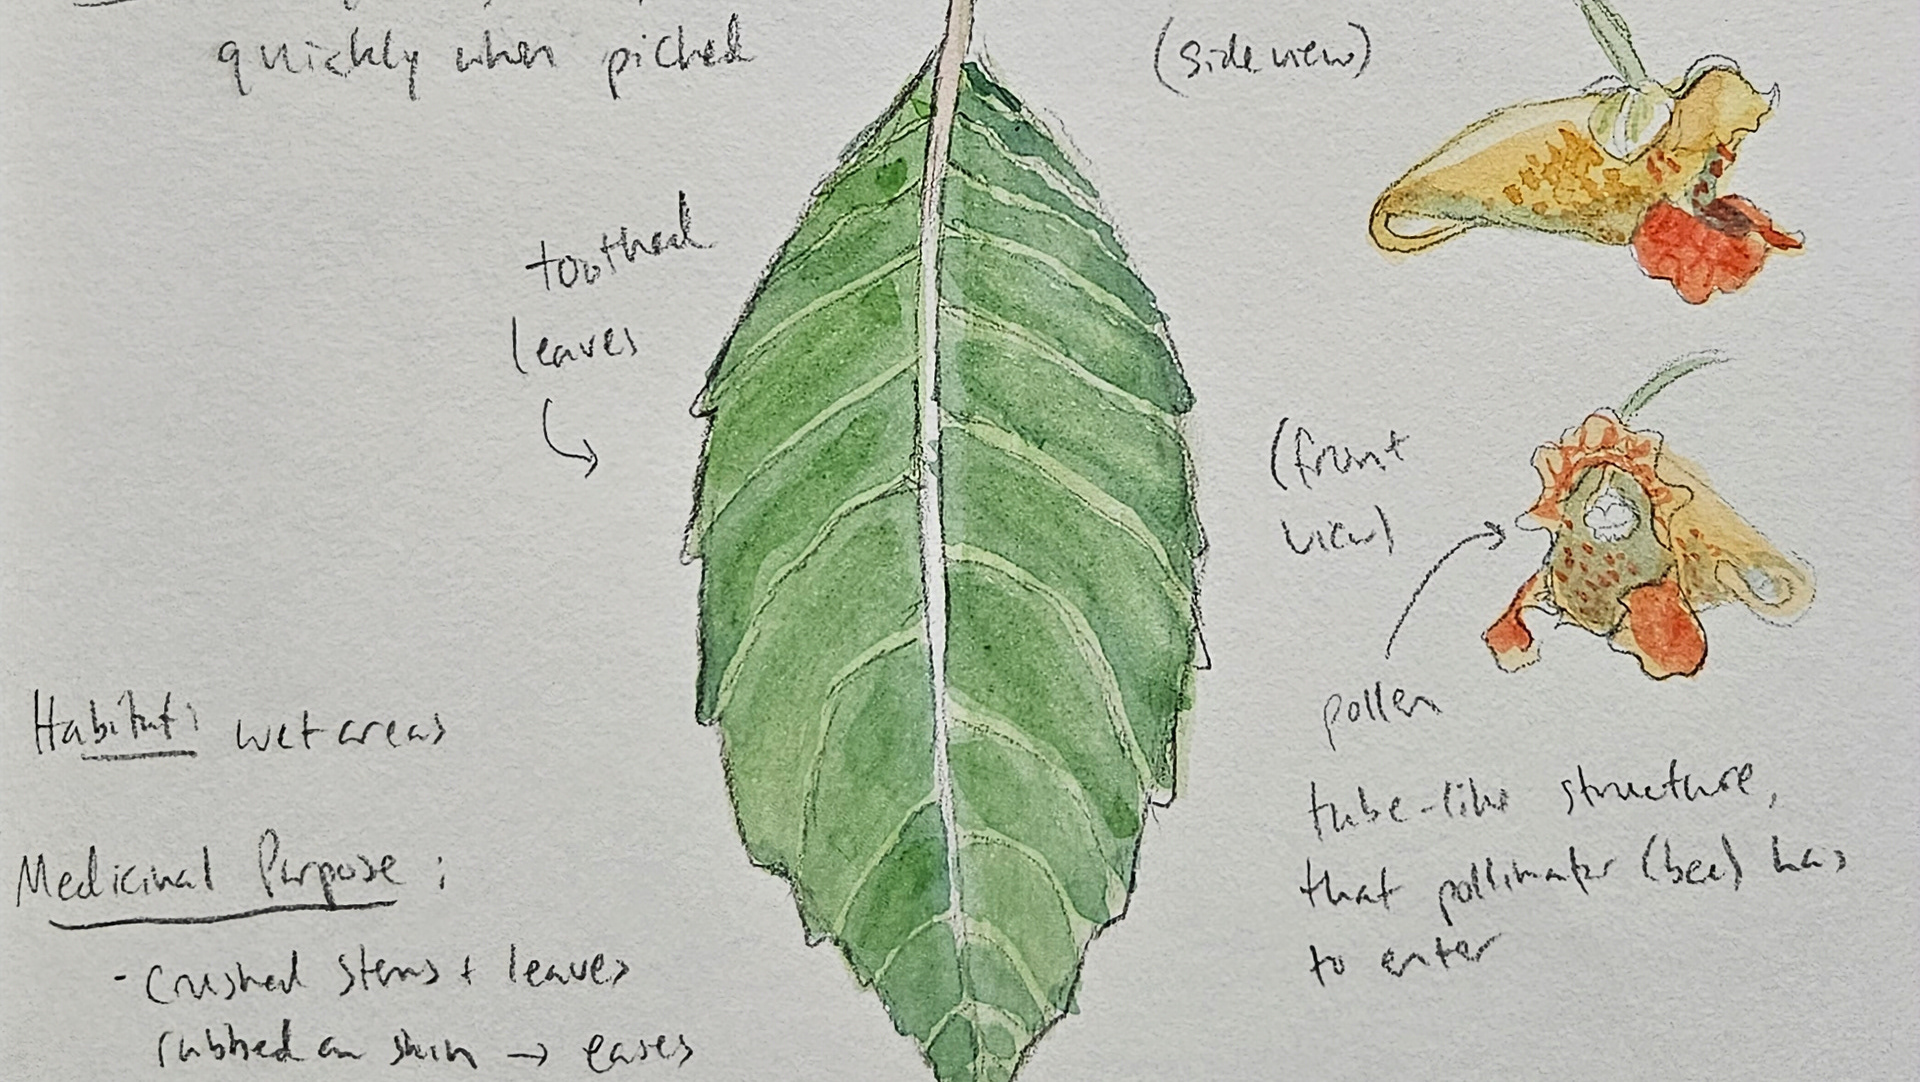 quickly when picked
(side view)
toothed
leaves
(front
view)
pollen
Habitat: wet areas
tube-like structure,
that pollinator (bee) has
to enter
Medicinal Purpose:
- crushed stems + leaves
rubbed on skin → eases